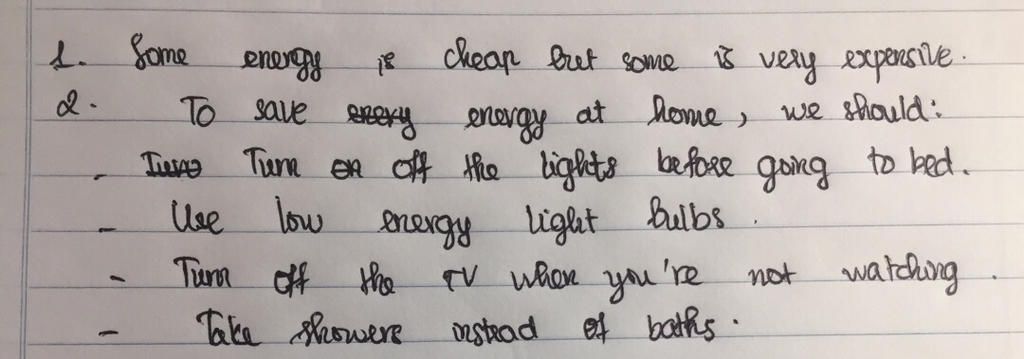 1. Some energy is cheap but some is very expensive.
2. To save enery energy at home, we should:
- Turn Turn on off the lights before going to bed.
- Use low energy light bulbs.
- Turn off the TV when you're not watching.
- Take showers instead of baths.